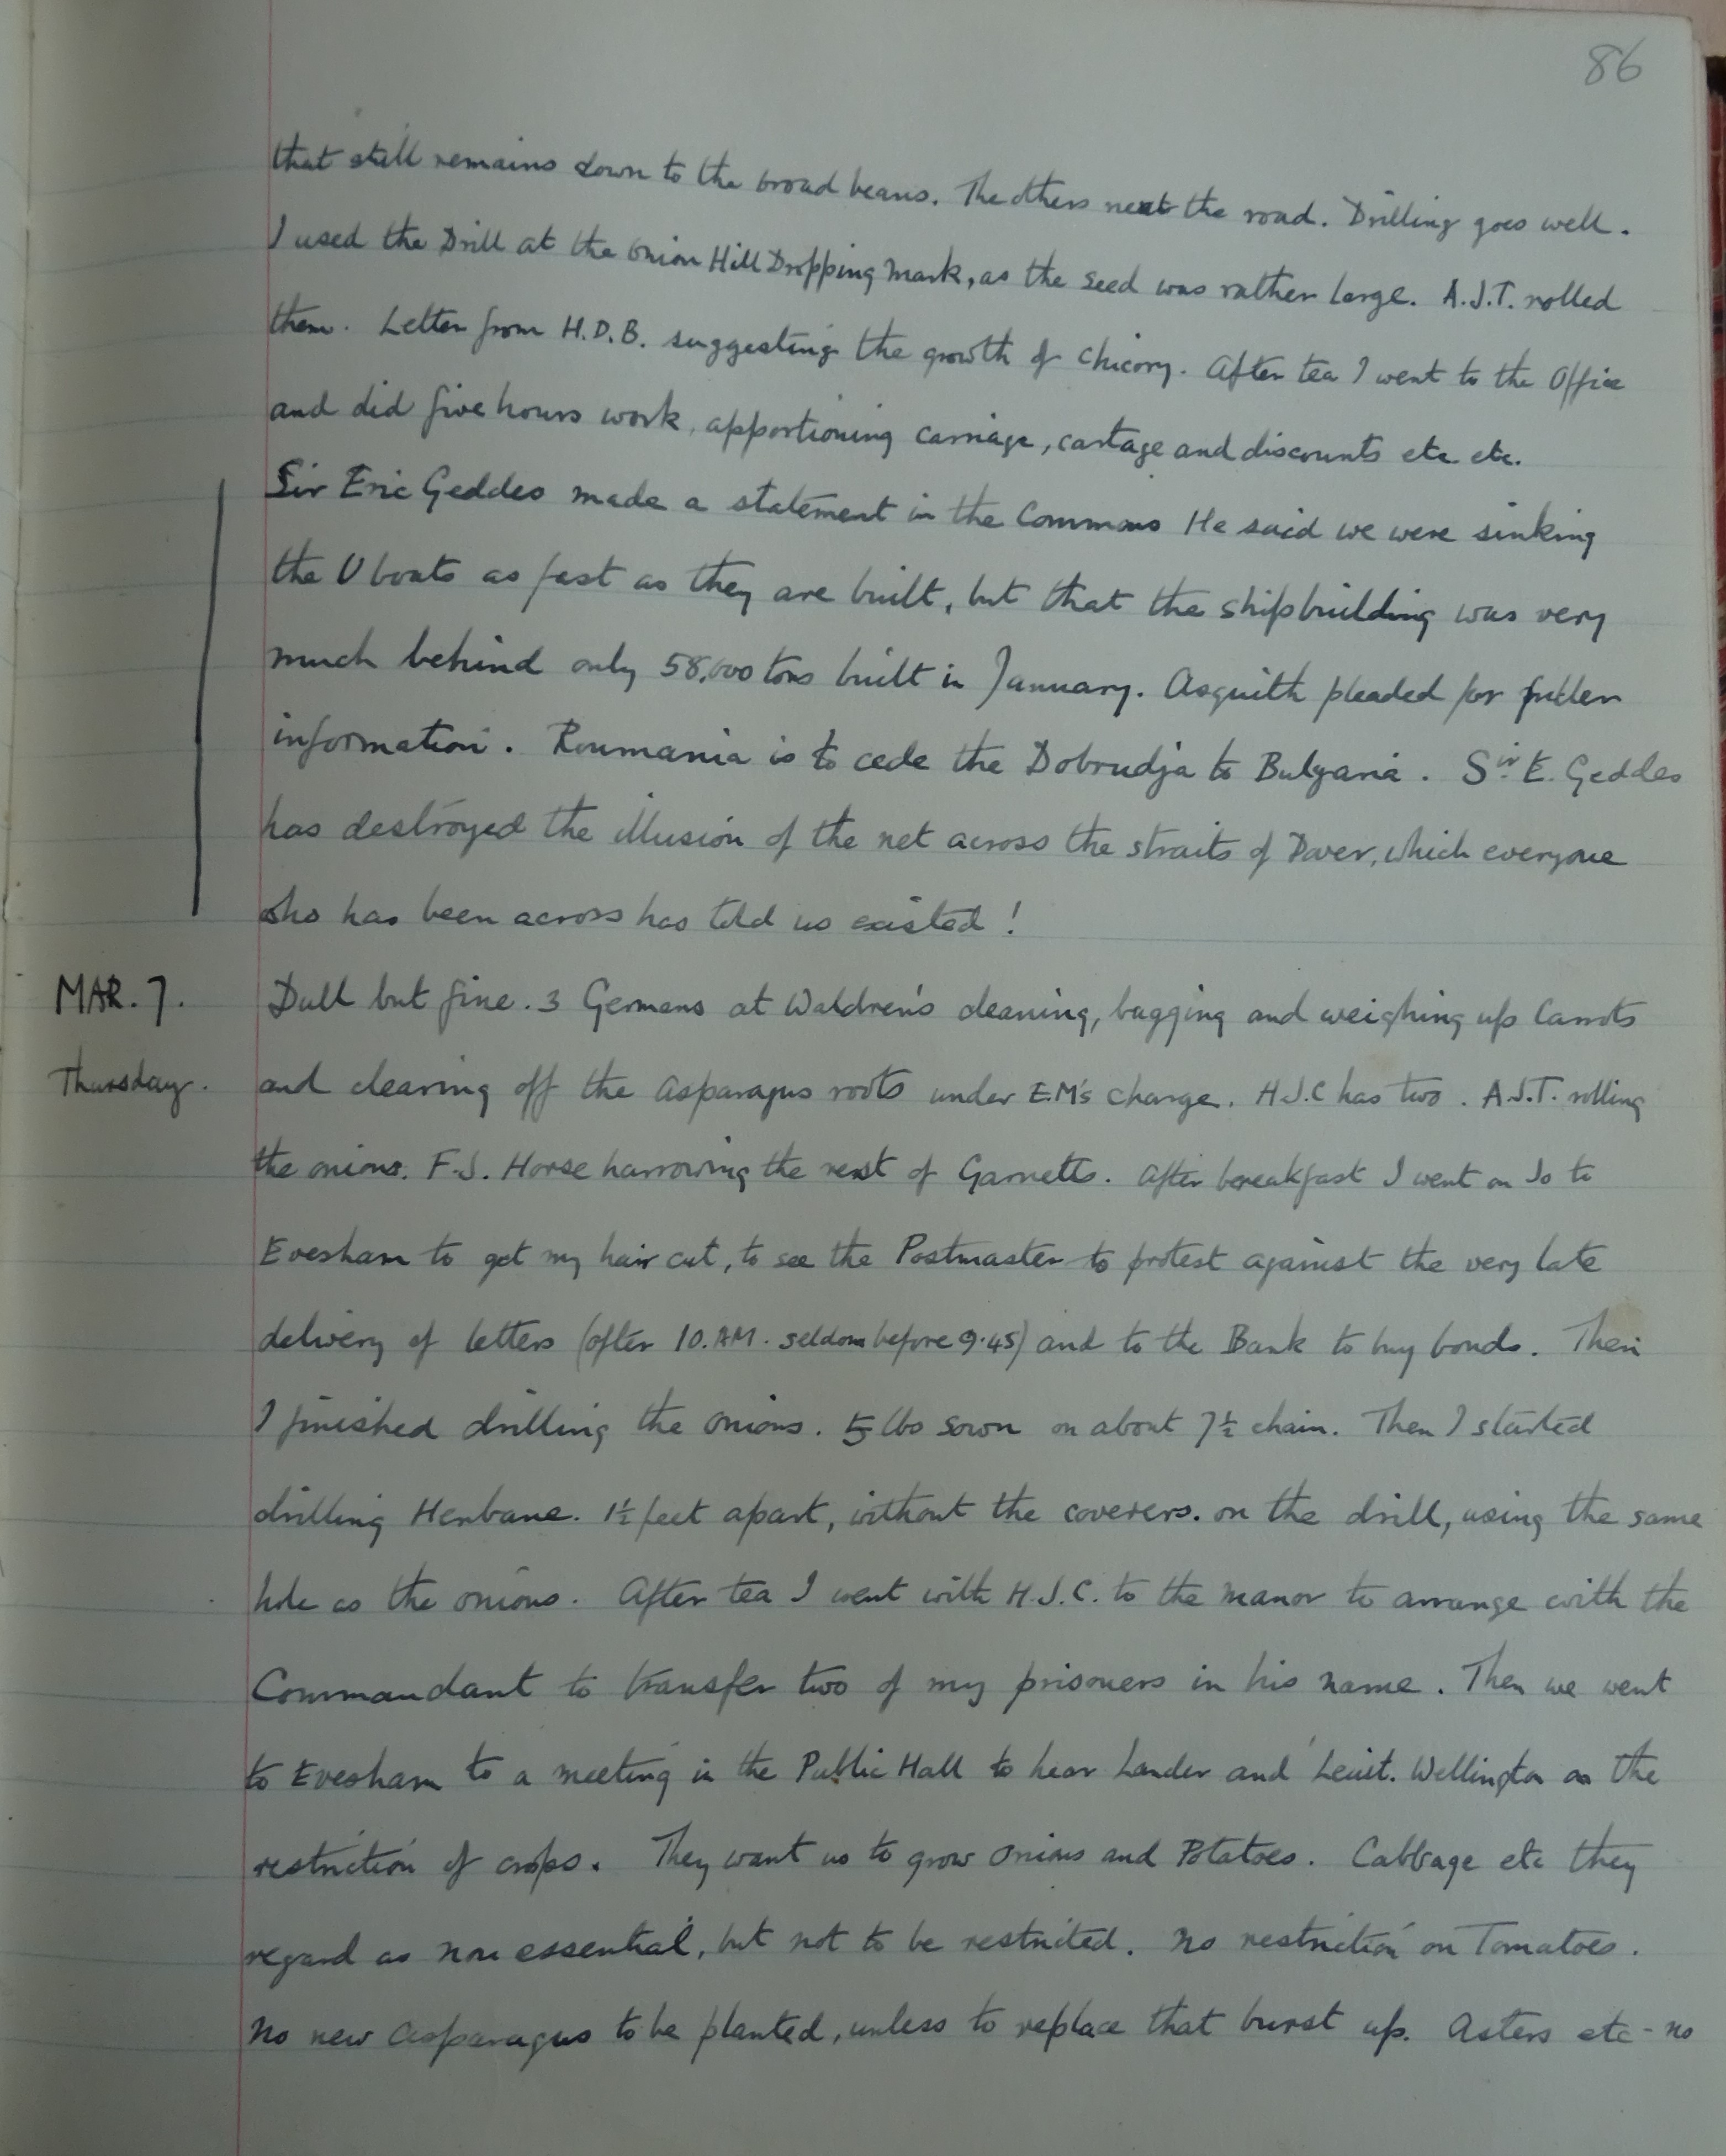 86
that still remains down to the broad beans. The others next the road. Drilling goes well.
I used the Drill at the Onion Hill Dropping Mark, as the seed was rather large. A.J.T. rolled
them. Letter from H.D.B. suggesting the growth of Chicory. After tea I went to the Office
and did five hours work, apportioning carriage, cartage and discounts etc etc.
Sir Eric Geddes made a statement in the Commons He said we were sinking
the U boats as fast as they are built, but that the shipbuilding was very
much behind only 58,000 tons built in January. Asquith pleaded for fuller
information. Roumania is to cede the Dobrudja to Bulgaria. Sir E. Geddes
has destroyed the illusion of the net across the straits of Dover, which everyone
who has been across has told us existed!
MAR. 7. Dull but fine. 3 Germans at Waldren's cleaning, bagging and weighing up Carrots
Thursday. and clearing off the Asparagus roots under E.M's charge. H.J.C has two. A.J.T. rolling
the onions. F.J. Horse harrowing the rest of Garnetts. After bereakfast I went on Jo to
Evesham to get my hair cut, to see the Postmaster to protest against the very late
delivery of letters (after 10. AM. seldom before 9.45) and to the Bank to buy bonds. Then
I finished drilling the onions. 5 lbs sown on about 7½ chain. Then I started
drilling Henbane. 1½ feet apart, without the coverers. on the drill, using the same
hole as the onions. After tea I went with H.J.C. to the Manor to arrange with the
Commandant to transfer two of my prisoners in his name. Then we went
to Evesham to a meeting in the Public Hall to hear Lander and Leiut. Wellington on the
restriction of crops. They want us to grow Onions and Potatoes. Cabbage etc they
regard as non essential, but not to be restricted. No restriction on Tomatoes.
No new Asparagus to be planted, unless to replace that burst up. Asters etc - no